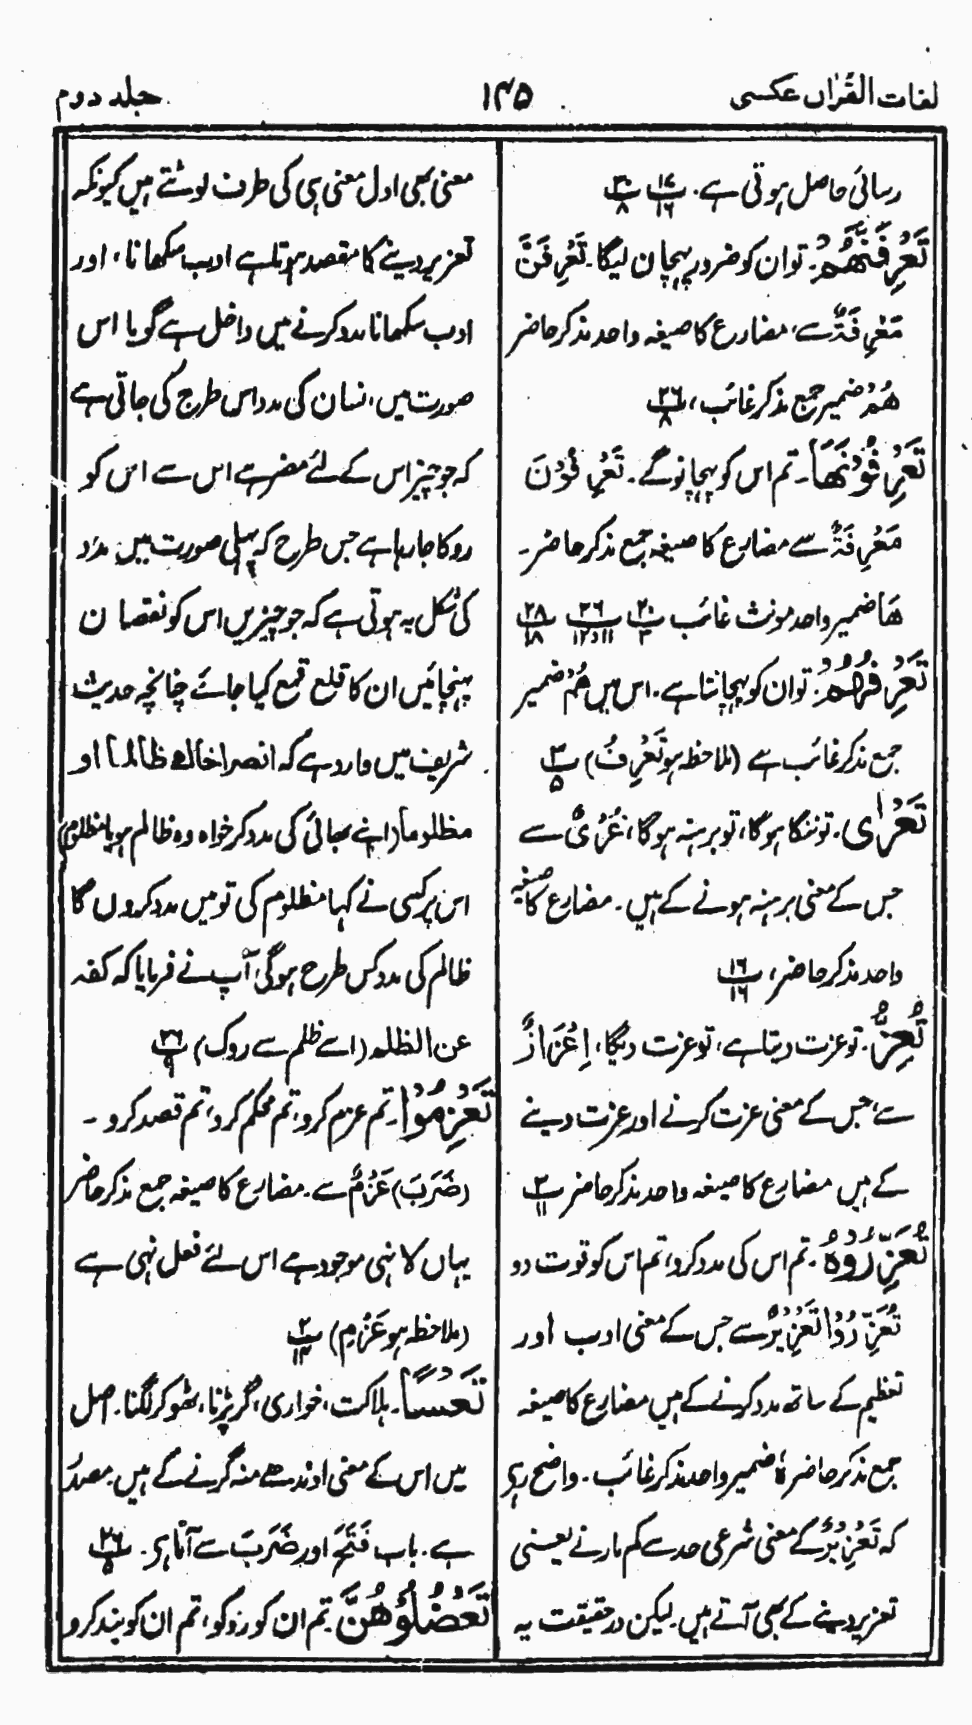 لغات القرآن عکسی
۱۴۵
جلد دوم
رسائی حاصل ہوتی ہے۔
تَعْرِفَنَّهُمْ۔ تو ان کو ضرور پہچان لیگا۔ تَعْرِفَنَّ
مَعْرِفَةٌ سے، مضارع کا صیغہ واحد مذکر حاضر
هُمْ ضمیر جمع مذکر غائب، ۲۶/۸
تَعْرِفُوْنَهَا۔ تم اس کو پہچانو گے۔ تَعْرِفُوْنَ
مَعْرِفَةٌ سے مضارع کا صیغہ جمع مذکر حاضر۔
هَا ضمیر واحد مونث غائب ۲۰/۳ ۲۶/۱۱و۱۲ ۲۸/۱۸
تَعْرِفُهُمْ۔ تو ان کو پہچانتا ہے۔ اس میں هُمْ ضمیر
جمع مذکر غائب ہے (ملاحظہ ہو تَعْرِفُ) ۳/۵
تَعْرٰی۔ تو ننگا ہوگا، تو برہنہ ہوگا، عُرْیٌ سے
جس کے معنی برہنہ ہونے کے ہیں۔ مضارع کا صیغہ
واحد مذکر حاضر، ۱۶/۱۶
تُعِزُّ۔ تو عزت دیتا ہے، تو عزت دیگا، اِعْزَازٌ
سے، جس کے معنی عزت کرنے اور عزت دینے
کے ہیں مضارع کا صیغہ واحد مذکر حاضر ۳/۱۱
تُعَزِّرُوْهُ۔ تم اس کی مدد کرو، تم اس کو قوت دو
تُعَزِّرُوْا تَعْزِیْرٌ سے جس کے معنی ادب اور
تعظیم کے ساتھ مدد کرنے کے ہیں مضارع کا صیغہ
جمع مذکر حاضر ہٗ ضمیر واحد مذکر غائب۔ واضح رہے
کہ تَعْزِیْرٌ کے معنی شرعی حد سے کم مارنے یعنی
تعزیر دینے کے بھی آتے ہیں۔ لیکن در حقیقت یہ
معنی بھی اول معنی ہی کی طرف لوٹتے ہیں کیونکہ
تعزیر دینے کا مقصد ہوتا ہے ادب سکھانا، اور
ادب سکھانا مدد کرنے میں داخل ہے گویا اس
صورت میں انسان کی مدد اس طرح کی جاتی ہے
کہ جو چیز اس کے لئے مضر ہے اس سے اس کو
روکا جارہا ہے جس طرح کہ پہلی صورت میں مدد
کی شکل یہ ہوتی ہے کہ جو چیزیں اس کو نقصان
پہنچائیں ان کا قلع قمع کیا جائے چنانچہ حدیث
شریف میں وارد ہے کہ انصر اخاك ظالما او
مظلوما (اپنے بھائی کی مدد کر خواہ وہ ظالم ہو یا مظلوم)
اس پر کسی نے کہا مظلوم کی تو میں مدد کروں گا
ظالم کی مدد کس طرح ہوگی آپ نے فرمایا کہ کفہ
عن الظلم (اسے ظلم سے روک) ۲۶/۹
تَعْزِمُوْا۔ تم عزم کرو، تم محکم کرو، تم قصد کرو۔
(ضَرَبَ) عَزْمٌ سے۔ مضارع کا صیغہ جمع مذکر حاضر
یہاں لا نہی موجود ہے اس لئے فعل نہی ہے
(ملاحظہ ہو عَزْم) ۲/۱۴
تَعْسًا۔ ہلاکت، خواری، گر پڑنا، ٹھوکر لگنا۔ اصل
میں اس کے معنی اوندھے منہ گرنے کے ہیں۔ مصدر
ہے۔ باب فَتَحَ اور ضَرَبَ سے آتا ہے۔ ۲۶/۵
تَعْضُلُوْهُنَّ۔ تم ان کو روکو، تم ان کو بند کرو